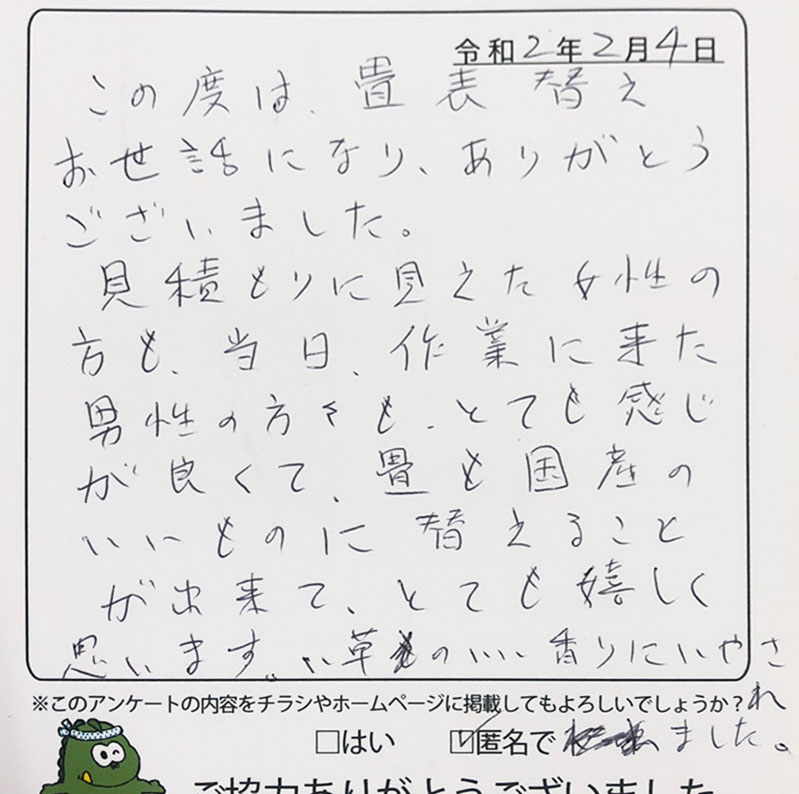 令和2年2月4日
この度は、畳表替え
お世話になり、ありがとう
ございました。
見積もりに見えた女性の
方も、当日、作業に来た
男性の方も、とても感じ
が良くて、畳も国産の
いいものに替えること
が出来て、とても嬉しく
思います。い草のいい香りにいやさ
れ
※このアンケートの内容をチラシやホームページに掲載してもよろしいでしょうか?
□はい ☑匿名で ました。
ご協力ありがとうございました